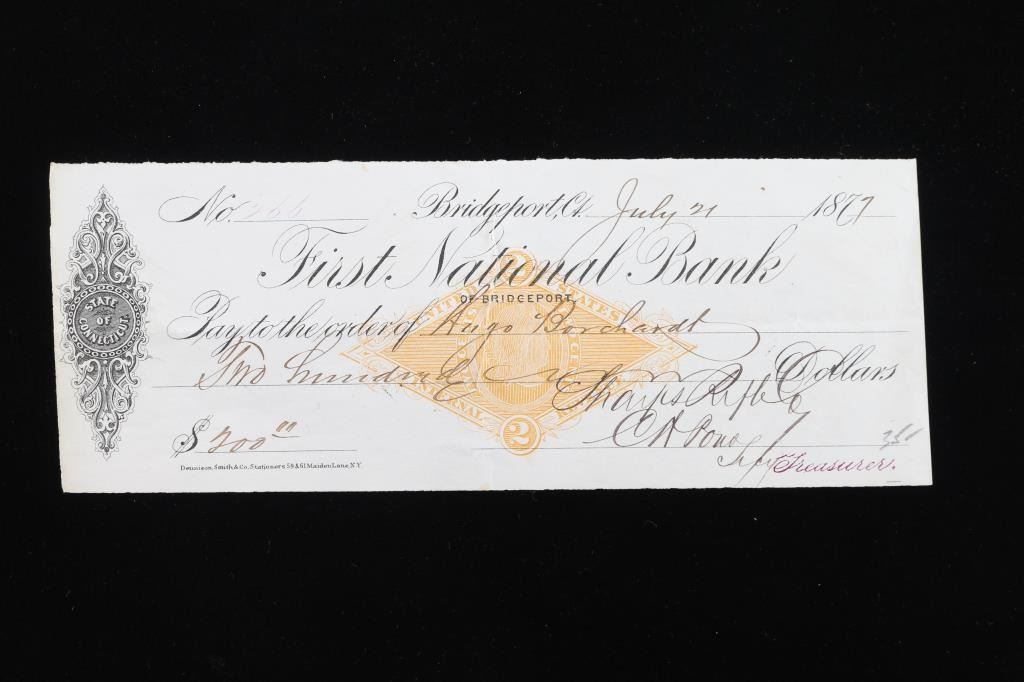 No. 266 Bridgeport, Ct. July 21 1877
First National Bank
OF BRIDGEPORT,
Pay to the order of Hugo Borchardt
Two hundred Dollars
Sharps Rifle Co
$ 200 00
C H Pond
Secy Treasurer.
Dennison, Smith & Co. Stationers 59 & 61 Maiden Lane, N.Y.
STATE
OF
CONNECTICUT.
2
UNITED STATES
INTERNAL
2